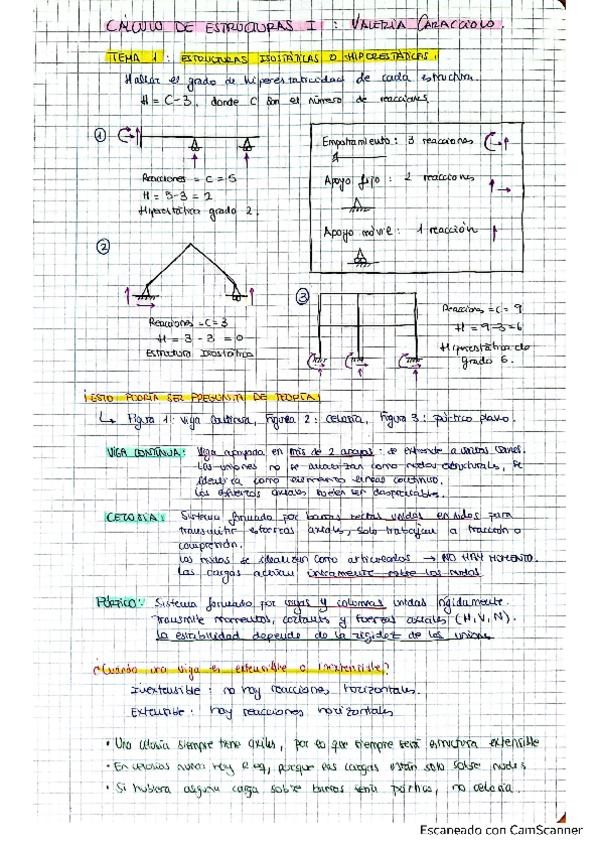 CALCULO DE ESTRUCTURAS I : VALERIA CARACCIOLO.
TEMA 1 : ESTRUCTURAS ISOSTÁTICAS O HIPERESTÁTICAS.
Hallar el grado de hiperestaticidad de cada estructura.
H = C-3. donde C son el número de reacciones.
1
Reacciones = C = 5
H = 5-3 = 2
Hiperestática grado 2.
Empotramiento: 3 reacciones
Apoyo fijo: 2 reacciones
Apoyo móvil: 1 reacción
2
Reacciones = C = 3
H = 3 - 3 = 0
Estructura Isostática
3
Reacciones = C = 9
H = 9-3 = 6
Hiperestática de
grado 6.
¡ESTO PODRÍA SER PREGUNTA DE TEORÍA!
Figura 1: viga continua, Figura 2: celosía, Figura 3: pórtico plano.
VIGA CONTINUA: Viga apoyada en más de 2 apoyos: se extiende a varios vanos.
Las uniones no se analizan como nudos estructurales, se
idealiza como elemento lineal continuo.
Los esfuerzos axiales suelen ser despreciables.
CELOSÍA: Sistema formado por barras rectas unidas en nudos para
transmitir esfuerzos axiales, solo trabajan a tracción o
compresión.
Los nudos se idealizan como articulados → NO HAY MOMENTO.
Las cargas actúan únicamente sobre los nudos
PÓRTICO: Sistema formado por vigas y columnas unidas rígidamente.
Transmite momentos, cortantes y fuerzas axiales (M, V, N).
La estabilidad depende de la rigidez de las uniones
¿Cuándo una viga es extensible o inextensible?
Inextensible: no hay reacciones horizontales.
Extensible: hay reacciones horizontales
• Una celosía siempre tiene axiles, por lo que siempre será estructura extensible
• En celosías nunca hay, porque las cargas están solo sobre nudos
• Si hubiera alguna carga sobre barras sería pórtico, no celosía.
Escaneado con CamScanner